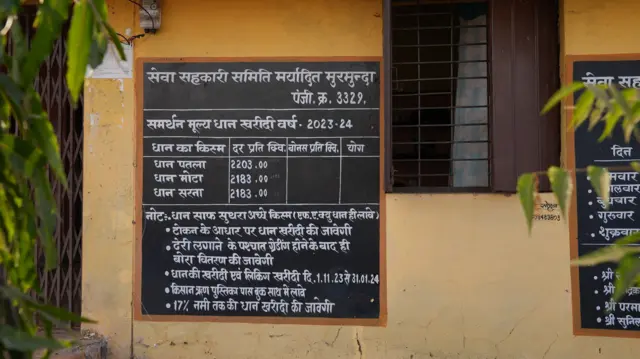 सेवा सहकारी समिति मर्यादित मुरमुन्दा
पंजी. क्र. 3329.
समर्थन मूल्य धान खरीदी वर्ष - 2023-24
धान का किस्म दर प्रति क्विं. बोनस प्रति क्विं. योग
धान पतला 2203.00
धान मोटा 2183.00
धान सरना 2183.00
नोट:- धान साफ सुथरा अच्छे किस्म (एफ.ए.क्यु धान ही लावे)
• टोकन के आधार पर धान खरीदी की जावेगी
• देरी लगाने के पश्चात ग्रेडिंग होने के बाद ही
बोरा वितरण की जावेगी
• धान की खरीदी एवं लिंकिंग खरीदी दि. 1.11.23 से 31.01.24
• किसान ऋण पुस्तिका पास बुक साथ में लावे
• 17% नमी तक की धान खरीदी की जावेगी
सेवा सह
दिन
गुरूवार
शुक्रवार
• श्री सुनिल